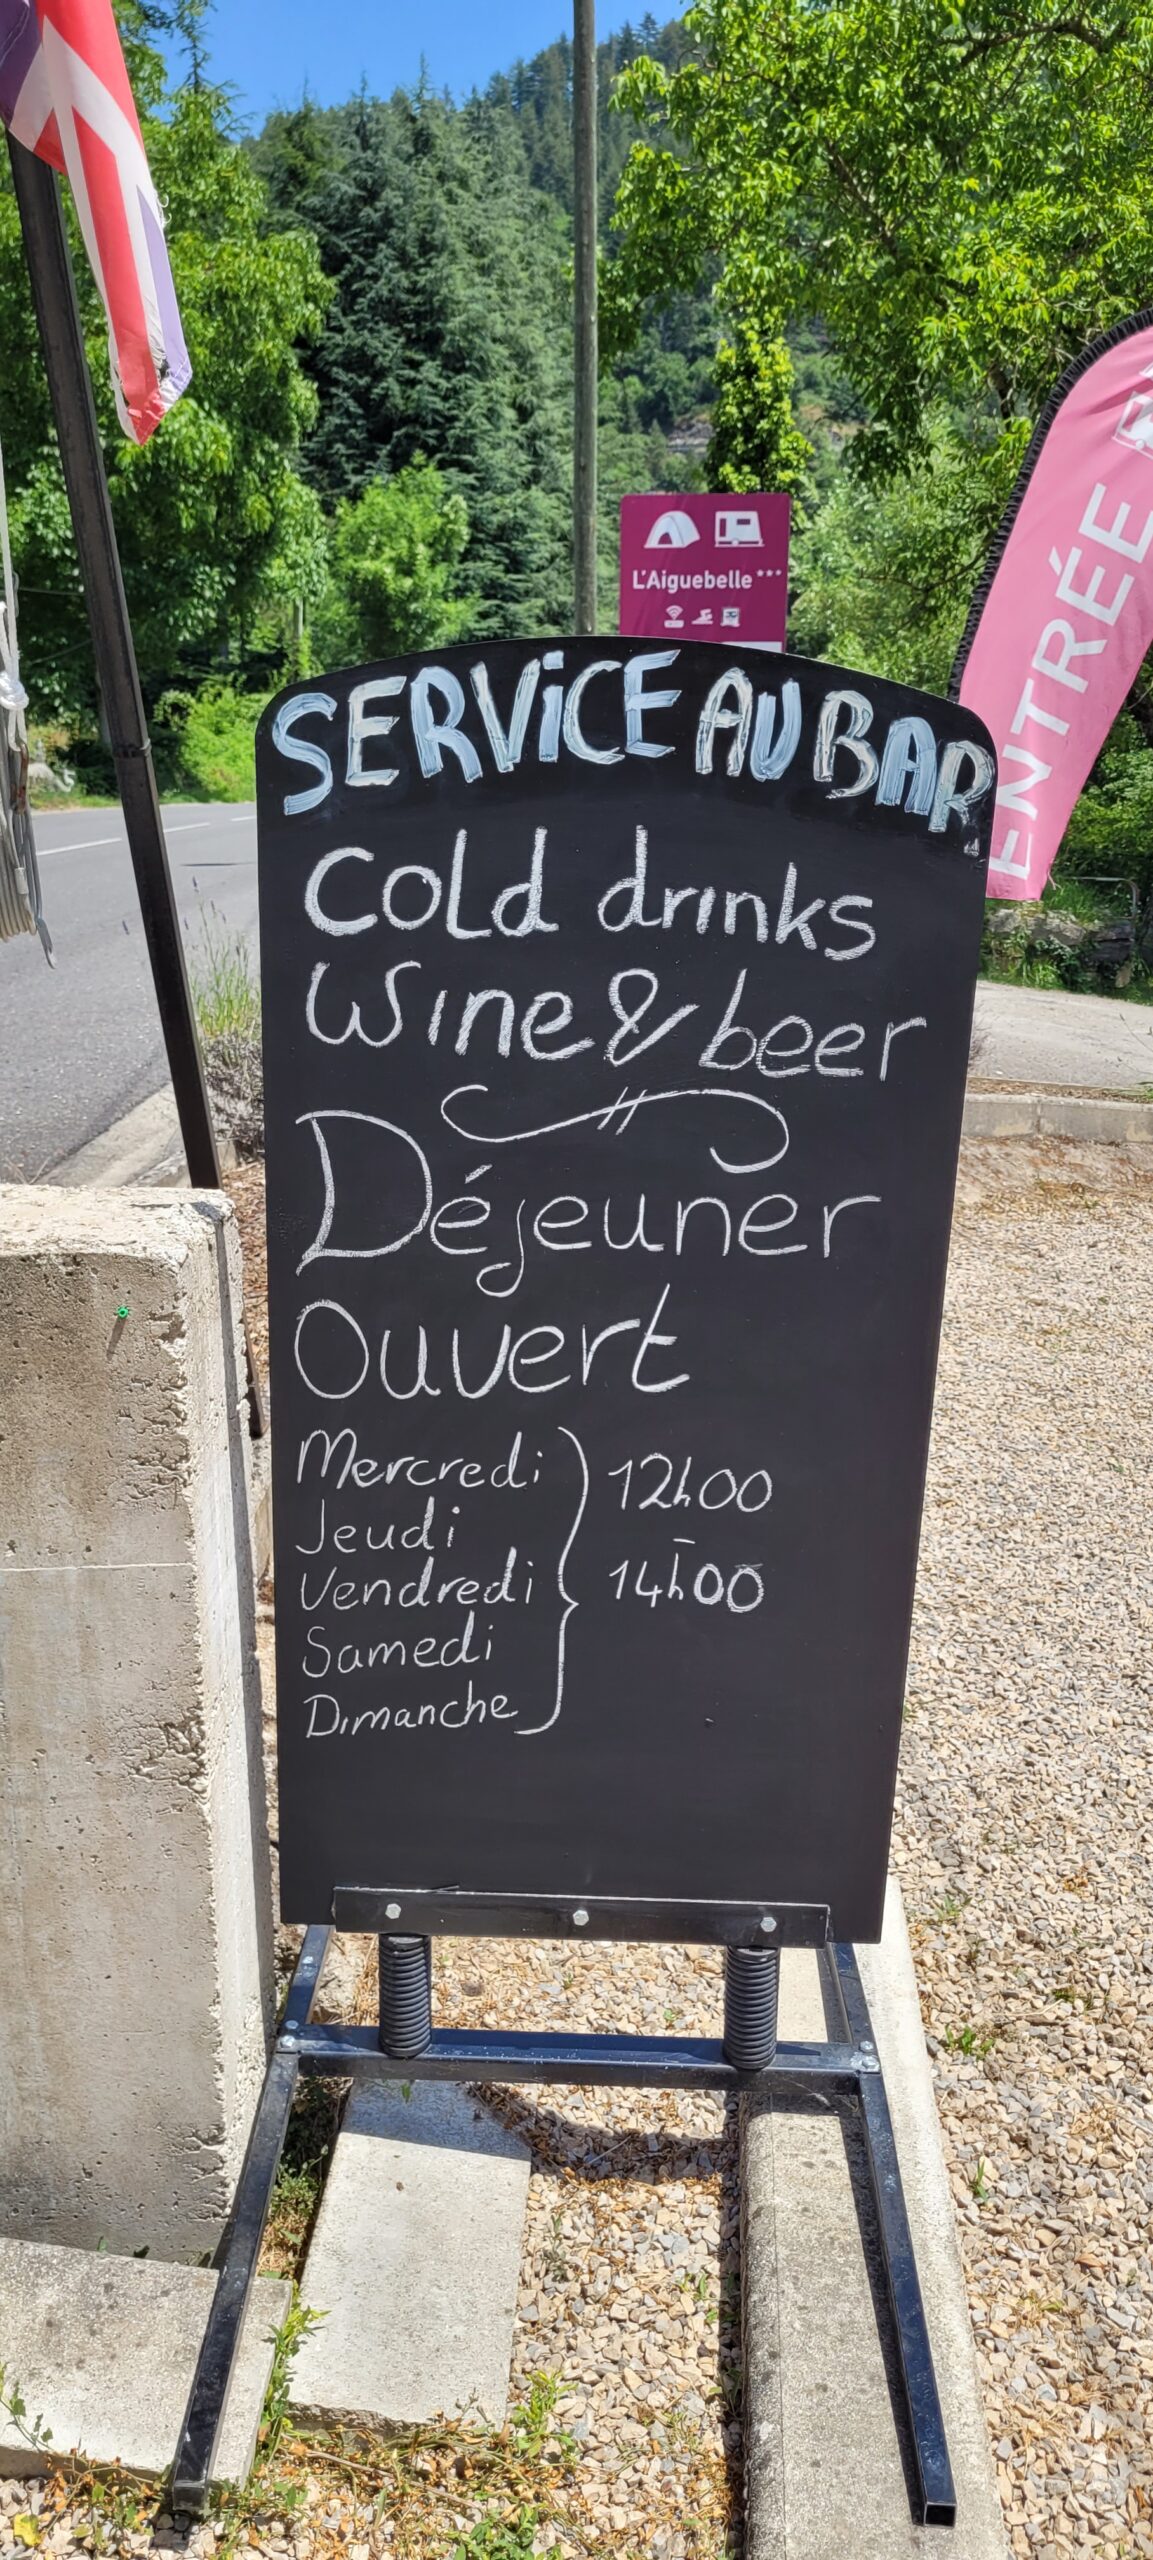 L'Aiguebelle ***
ENTRÉE
SERViCE AU BAR
Cold drinks
Wine & beer
Déjeuner
Ouvert
Mercredi
Jeudi
Vendredi
Samedi
Dimanche
12h00
-
14h00